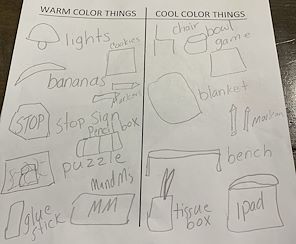 WARM COLOR THINGS
COOL COLOR THINGS
lights
cookies
bananas
markers
STOP
stop sign
pencil box
puzzle
M and M's
MM
glue stick
chair
bowl
game
blanket
markers
bench
tissue box
ipad